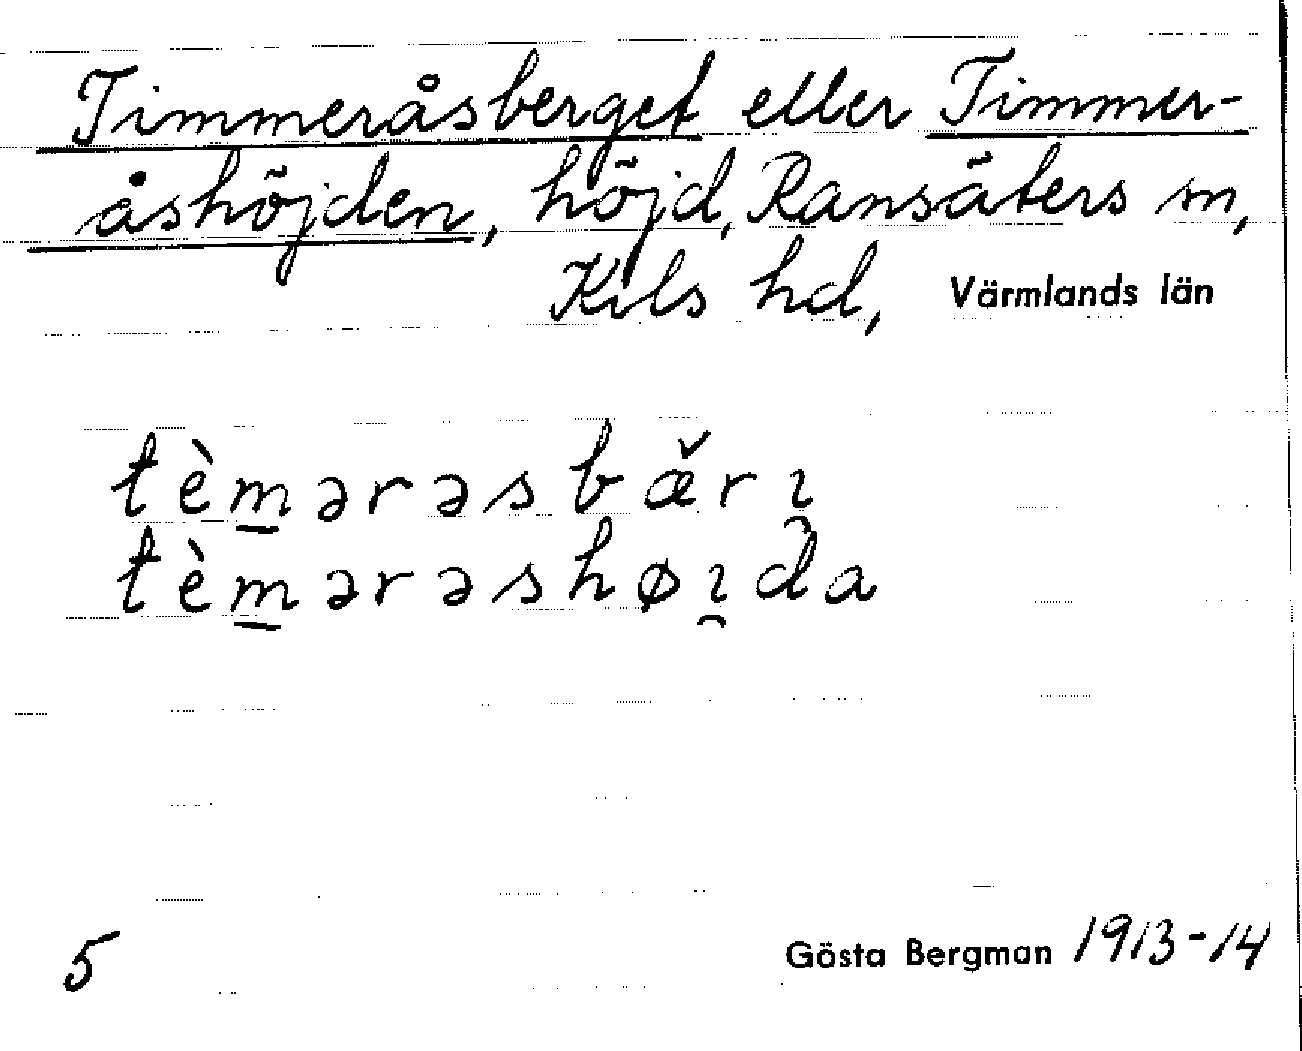 Timmeråsberget eller Timmer-
åshöjden, höjd, Ransäters sn,
Kils hd, Värmlands län
tèm̲ərəsbæ̌rı̯
tèm̲ərəshøı̯da
5 Gösta Bergman 1913-14